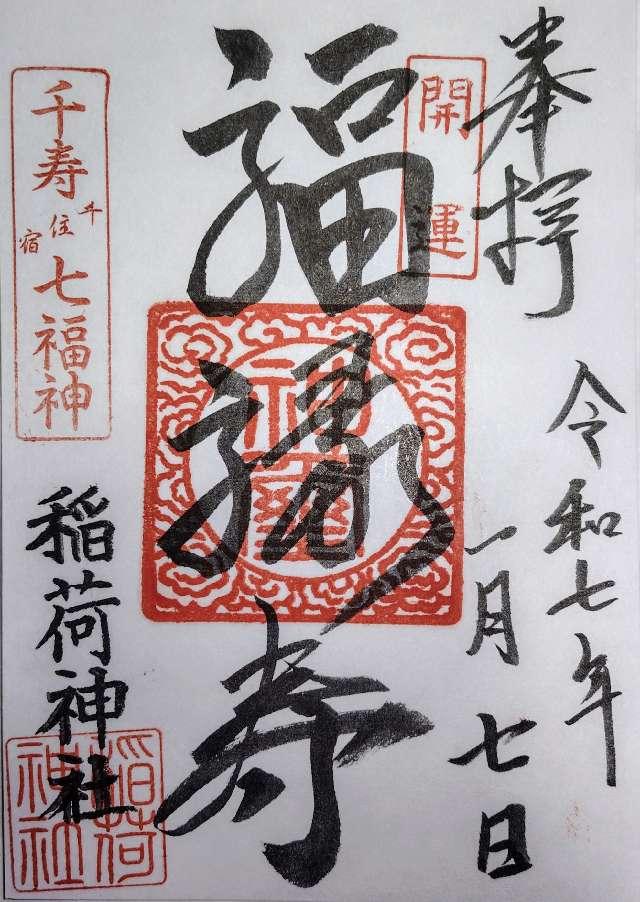 奉拝
令和七年
一月七日
開運
福禄寿
千寿七福神
千住宿
稲荷神社
稲荷神社